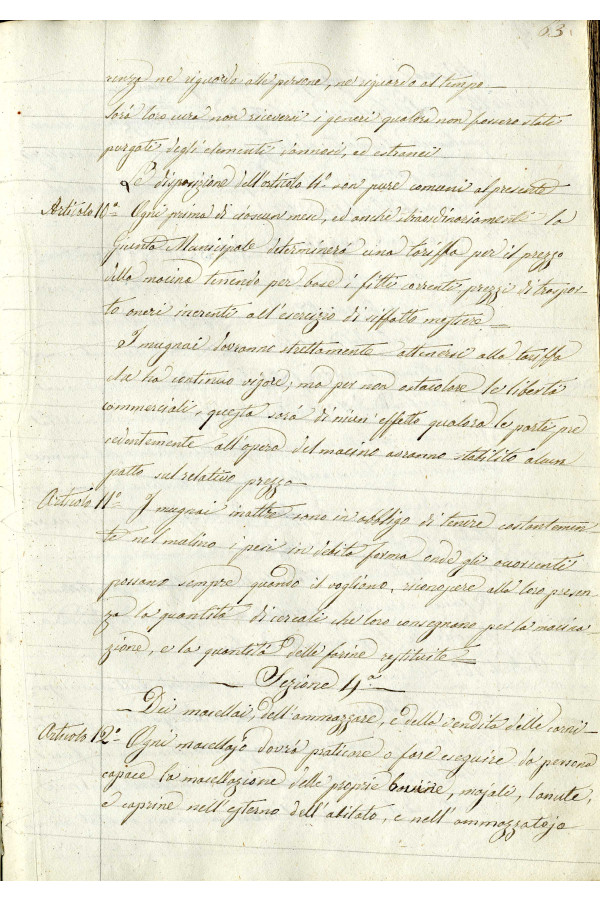 63.
renza nè riguardo alle persone, nè riguardo al tempo
sarà loro cura non riceversi i generi qualora non fossero stati
purgati degli elementi dannosi, ed estranei
Le disposizione dell'articolo 4° son pure comuni al presente
Articolo 10° Ogni prima di ciascun mese, ed anche straordinariamente la
Giunta Municipale determinerà una tariffa per il prezzo
della macina tenendo per base i fitti correnti prezzi di traspor-
to oneri inerenti all'esercizio di siffatto mestiere
I mugnai dovranno strettamente attenersi alla tariffa
che ha continuo vigore; ma per non ostacolare le libertà
commerciali, questa sarà di niun' effetto qualora le parti pre
cedentemente all'opera del macino avranno stabilito alcun
patto sul relativo prezzo
Articolo 11° I mugnai inoltre sono in obbligo di tenere costantemen-
te nel molino i pesi in debita forma onde gli avventi
possano sempre quando il vogliano, riconoscere alla loro presen-
za la quantità di cereali che loro consegnano per la macina
zione, e la quantità delle farine restituite
Sezione 4ª
Dei macellai, dell'ammazzare, e della vendita delle carni
Articolo 12° Ogni macellajo dovrà praticare o fare eseguire da persona
capace la macellazione delle proprie bovine, majali, lanute,
e caprine nell'esterno dell'abitato, e nell'ammazzatojo